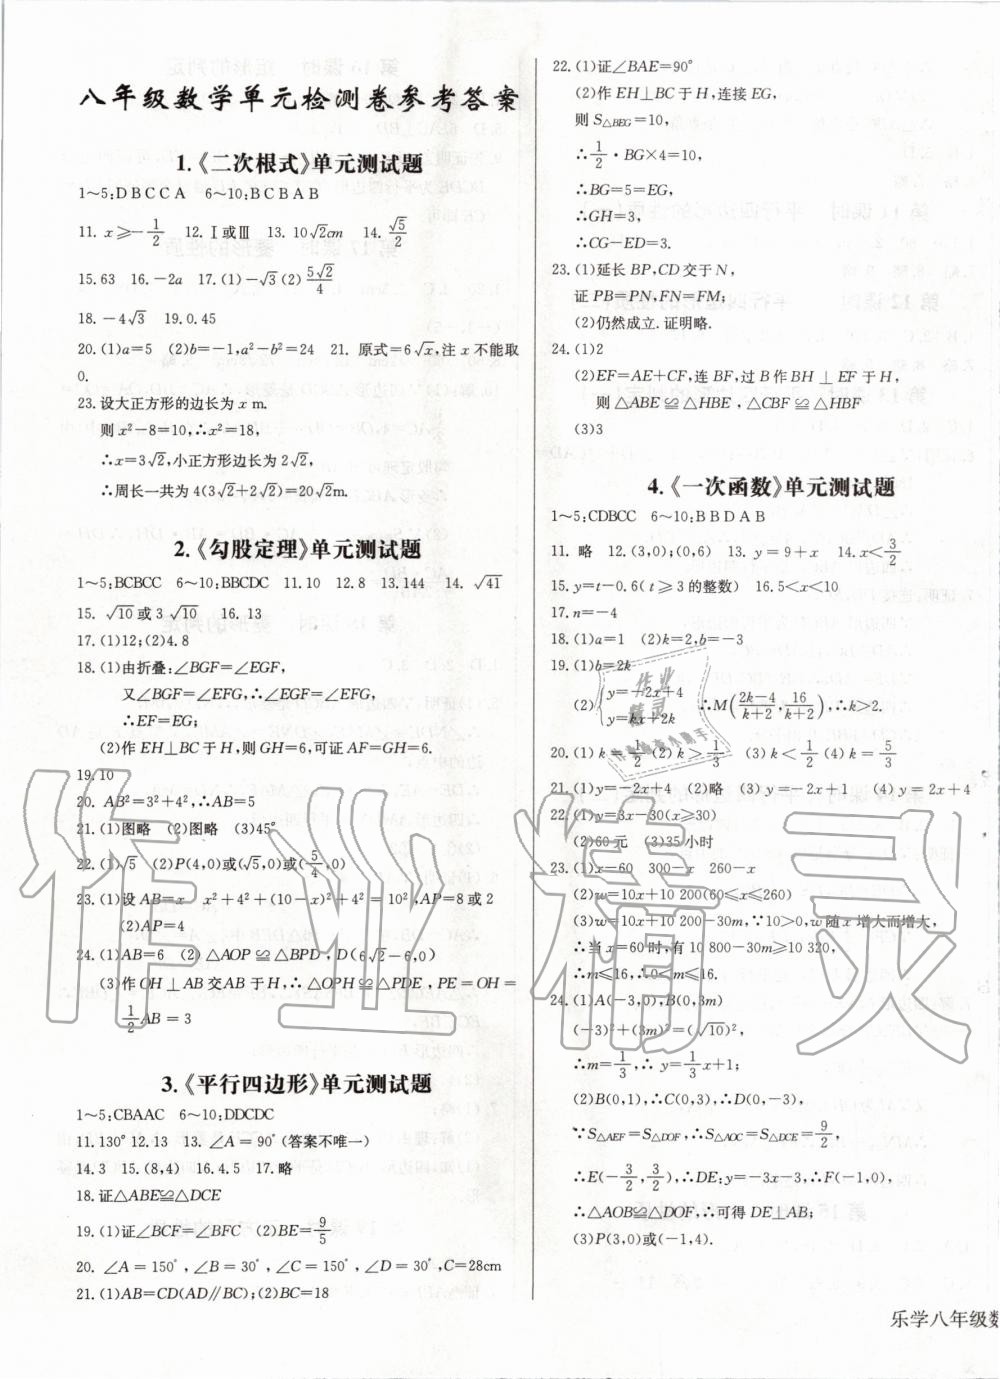 八年级数学单元检测卷参考答案
1.《二次根式》单元测试题
1~5:DBCCA 6~10:BCBAB
11. x≥-1/2 12. Ⅰ或Ⅲ 13. 10√2cm 14. √5/2
15. 63 16. -2a 17. (1)-√3 (2)5√2/4
18. -4√3 19. 0.45
20. (1)a=5 (2)b=-1,a²-b²=24 21. 原式=6√x,注 x 不能取
0.
23. 设大正方形的边长为 x m.
则 x²-8=10,∴x²=18,
∴x=3√2,小正方形边长为 2√2,
∴周长一共为 4(3√2+2√2)=20√2m.
2.《勾股定理》单元测试题
1~5:BCBCC 6~10:BBCDC 11.10 12.8 13.144 14. √41
15. √10或3√10 16. 13
17. (1)12;(2)4.8
18. (1)由折叠:∠BGF=∠EGF,
又∠BGF=∠EFG,∴∠EGF=∠EFG,
∴EF=EG;
(2)作 EH⊥BC 于 H,则 GH=6,可证 AF=GH=6.
19. 10
20. AB²=3²+4²,∴AB=5
21. (1)图略 (2)图略 (3)45°
22. (1)√5 (2)P(4,0)或(√5,0)或(5/4,0)
23. (1)设 AB=x x²+4²+(10-x)²+4²=10²,AP=8或2
(2)AP=4
24. (1)AB=6 (2)△AOP≌△BPD,D(6√2-6,0)
(3)作 OH⊥AB 交 AB 于 H,∴△OPH≌△PDE,PE=OH=
1/2AB=3
3.《平行四边形》单元测试题
1~5:CBAAC 6~10:DDCDC
11. 130° 12. 13 13. ∠A=90°(答案不唯一)
14. 3 15. (8,4) 16. 4.5 17. 略
18. 证△ABE≌△DCE
19. (1)证∠BCF=∠BFC (2)BE=9/5
20. ∠A=150°,∠B=30°,∠C=150°,∠D=30°,C=28cm
21. (1)AB=CD(AD∥BC);(2)BC=18
22. (1)证∠BAE=90°
(2)作 EH⊥BC 于 H,连接 EG,
则 S△BEG=10,
∴1/2·BG×4=10,
∴BG=5=EG,
∴GH=3,
∴CG-ED=3.
23. (1)延长 BP,CD 交于 N,
证 PB=PN,FN=FM;
(2)仍然成立.证明略.
24. (1)2
(2)EF=AE+CF,连 BF,过 B 作 BH⊥EF 于 H,
则△ABE≌△HBE,△CBF≌△HBF
(3)3
4.《一次函数》单元测试题
1~5:CDBCC 6~10:BBDAB
11. 略 12. (3,0);(0,6) 13. y=9+x 14. x<3/2
15. y=t-0.6(t≥3的整数) 16. 5<x<10
17. n=-4
18. (1)a=1 (2)k=2,b=-3
19. (1)b=2k
(2){y=-2x+4 y=kx+2k ∴M(2k-4/k+2,16/k+2),∴k>2.
20. (1)k=1/2 (2)k>1/3 (3)k=1/2 (4)k=5/3
21. (1)y=-2x+4 (2)略 (3)y=-2x+1 (4)y=2x+4
22. (1)y=3x-30(x≥30)
(2)60元 (3)35小时
23. (1)x=60 300-x 260-x
(2)w=10x+10 200(60≤x≤260)
(3)w=10x+10 200-30m,∵10>0,w 随 x 增大而增大,
∴当 x=60时,有 10 800-30m≥10 320,
∴m≤16,∴0<m≤16.
24. (1)A(-3,0),B(0,3m)
(-3)²+(3m)²=(√10)²,
∴m=1/3,∴y=1/3x+1;
(2)B(0,1),∴C(0,3),D(0,-3),
∵S△AEF=S△DOF,∴S△AOC=S△DCE=9/2,
∴E(-3/2,3/2),∴DE:y=-3x-3,∴F(-1,0),
∴△AOB≌△DOF,∴可得 DE⊥AB;
(3)P(3,0)或(-1,4).
乐学八年级数
作业精灵
作业
精灵